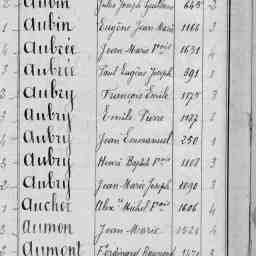 2 Aubin Jules Joseph 645 2
1 Aubin Eugène Jean Marie 1166 3
4 Aubrée Jean Marie 1651 4
3 Aubrée Paul Eugène Joseph 391 1
2 Aubry François Emile 1175 3
3 Aubry Emile Pierre 1137 2
4 Aubry Jean Emmanuel 250 1
3 Aubry Henri Baptiste 1108 3
2 Aubry Jean Marie Joseph 1090 3
1 Auchet Alex Michel 1606 4
3 Aumon Jean Marie 1526 4
2 Aumont Ferdinand 3